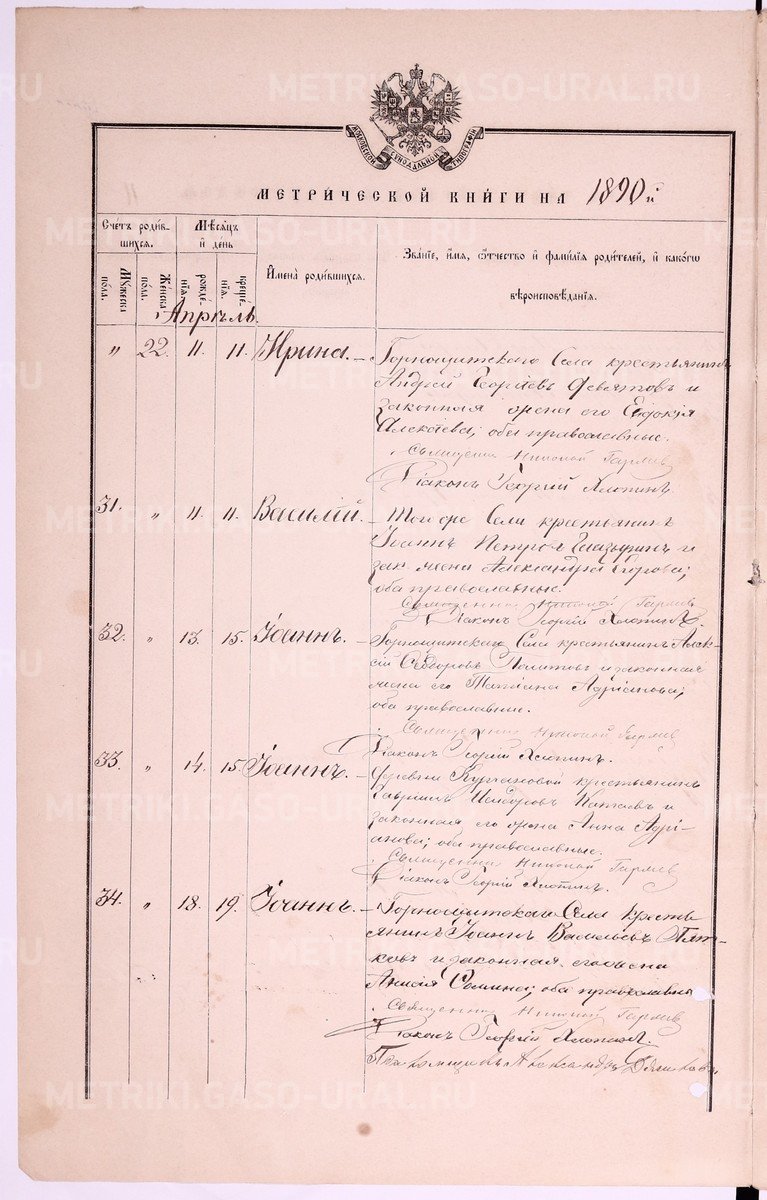 МОСКОВСКОЙ СѴНОДАЛЬНОЙ ТИПОГРАФІИ
МЕТРИЧЕСКОЙ КНИГИ НА 1890 й
Счетъ родившихся.
Мужеска пола.
Женска пола.
Мѣсяцъ и день
рожденія.
крещенія.
Имена родившихся.
Званіе, имя, отчество и фамилія родителей, и какого
вѣроисповѣданія.
Апрѣль.
" 22. 11. 11. Ирина. – Горнощитскаго Села крестьянинъ
Андрей Георгіевъ Девятовъ и
законная жена его Евдокія
Алексіева; оба православные.
Священникъ Николай Гаряевъ
Діаконъ Георгій Хлопинъ.
31. " 11. 11. Василій. – Того же Села крестьянинъ
Іоаннъ Петровъ и
зак. жена Александра Егорова;
оба православные.
Священникъ Николай Гаряевъ
Діаконъ Георгій Хлопинъ.
32. " 13. 15. Іоаннъ. – Горнощитскаго Села крестьянинъ Алек-
сѣй Сидоровъ и законная
жена его Татіана Адріанова;
оба православные.
Священникъ Николай Гаряевъ
Діаконъ Георгій Хлопинъ.
33. " 14. 15. Іоаннъ. – Деревни Кургановой крестьянинъ
Гавріилъ Исидоровъ Катаевъ и
законная его жена Анна Адрі-
анова; оба православные.
Священникъ Николай Гаряевъ
Діаконъ Георгій Хлопинъ.
34. " 18. 19. Іоаннъ. – Горнощитскаго Села кресть
янинъ Іоаннъ Васильевъ Пят-
ковъ и законная его жена
Анисія Сомина; оба православны
Священникъ Николай Гаряевъ
Діаконъ Георгій Хлопинъ.
Псаломщикъ Александръ
METRIKI.GASO-URAL.RU